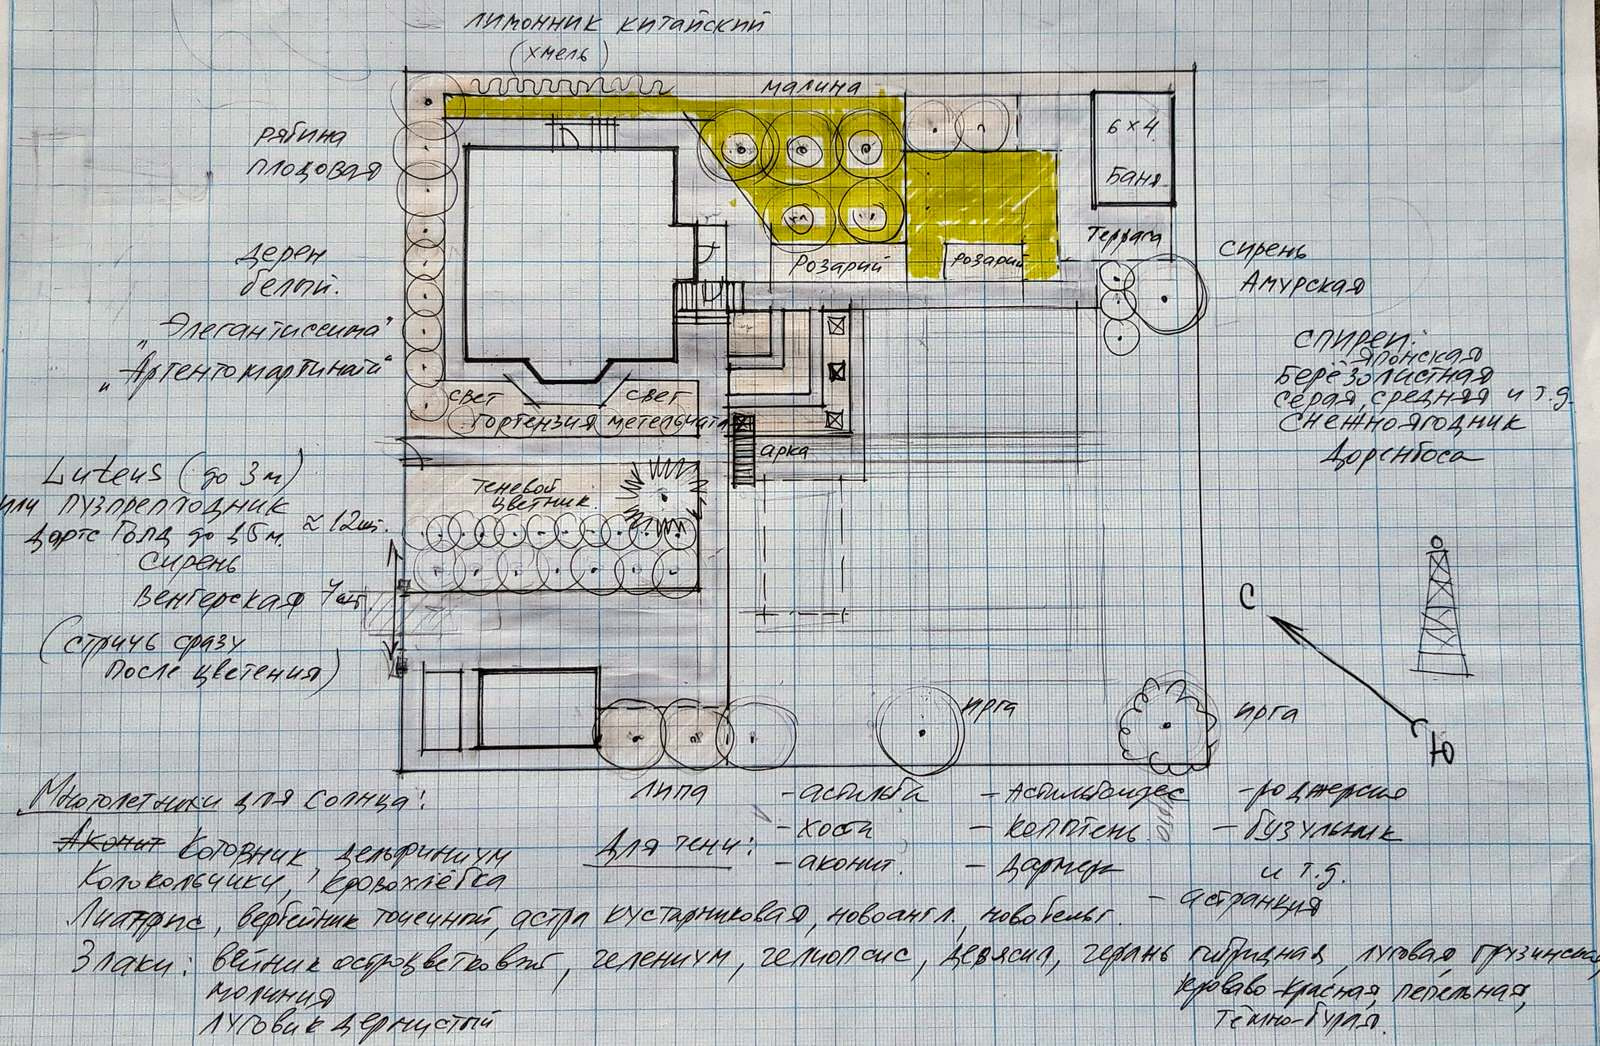 ЛИМОННИК КИТАЙСКИЙ
(ХМЕЛЬ)
МАЛИНА
РЯБИНА
ПЛОДОВАЯ
6×4
БАНЯ
ДЕРЕН
БЕЛЫЙ.
„Элегантиссима"
Терраса
РОЗАРИЙ
РОЗАРИЙ
СИРЕНЬ
АМУРСКАЯ
СПИРЕИ:
ЯПОНСКАЯ
БЕРЁЗОЛИСТНАЯ
СЕРАЯ, СРЕДНЯЯ И Т.Д.
СНЕЖНОЯГОДНИК
Доренбоса
СВЕТ
СВЕТ
ГОРТЕНЗИЯ МЕТЕЛЬЧАТА
АРКА
ТЕНЕВОЙ
ЦВЕТНИК.
Luteus (до 3 м)
ИЛИ ПУЗЫРЕПЛОДНИК
Дартс Голд до 1,5 м. ≈ 12шт.
СИРЕНЬ
ВЕНГЕРСКАЯ 7шт
(СТРИЧЬ СРАЗУ
ПОСЛЕ ЦВЕТЕНИЯ)
С
Ю
ИРГА
ИРГА
ЛИПА
Многолетники для солнца:
Аконит Котовник, дельфиниум
Колокольчики, кровохлёбка
Для тени:
- астильба
- хоста
- аконит.
- Астильбоидес
- копытень
- Дармера
- роджерсия
- бузульник
и т.д.
- астранция
Лиатрис, вербейник точечный, астра кустарниковая, новоангл., новобельг.
Злаки: вейник остроцветковый, гелениум, гелиопсис, девясил, герань гибридная, луговая, грузинская,
молиния
кроваво-красная, пепельная,
луговик дернистый
темно-бурая.